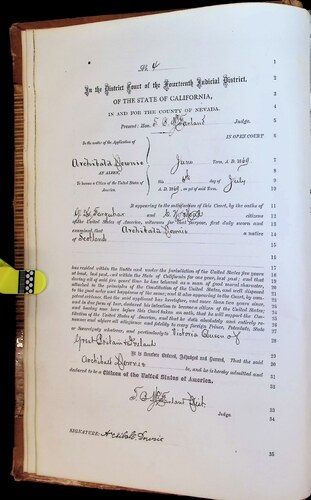 No. 4
1
In the District Court of the Fourteenth Judicial District.
2
OF THE STATE OF CALIFORNIA,
3
IN AND FOR THE COUNTY OF NEVADA.
4
Present: Hon. T. B. McFarland Judge.
5
IN OPEN COURT
6
In the matter of the Application of
7
Archibald Downie
June Term, A. D. 1869
8
AN ALIEN,
this 6th day of July
9
To become a Citizen of the United States of America.
A. D. 1869, as yet of said Term.
10
It appearing to the satisfaction of this Court, by the oaths of
12
and citizens
13
of the United States of America, witnesses for that purpose, first duly sworn and
14
examined, that Archibald Downie a native
15
of Scotland
16
has resided within the limits and under the jurisdiction of the United States five years
at least, last past, and within the State of California for one year, last past; and that
during all of said five years' time he has behaved as a man of good moral character,
attached to the principles of the Constitution of the United States, and well disposed
to the good order and happiness of the same; and it also appearing to the Court, by
petent evidence, that the said applicant has heretofore, and more than two years since,
and in due form of law, declared his intention to become a citizen of the United States;
and having now here before this Court taken an oath, that he will support the
stitution of the United States of America, and that he doth absolutely and entirely re-
nounce and abjure all allegiance and fidelity to every foreign Prince, Potentate, State
or Sovereignty whatever, and particularly to Victoria Queen of
28
Great Britain & Ireland
29
It is therefore Ordered, Adjudged and Decreed, That the said
30
Archibald Downie is, and he is hereby admitted and
31
declared to be a Citizen of the United States of America.
32
T. B. McFarland
33
Judge.
34
SIGNATURE: Archibald Downie
35